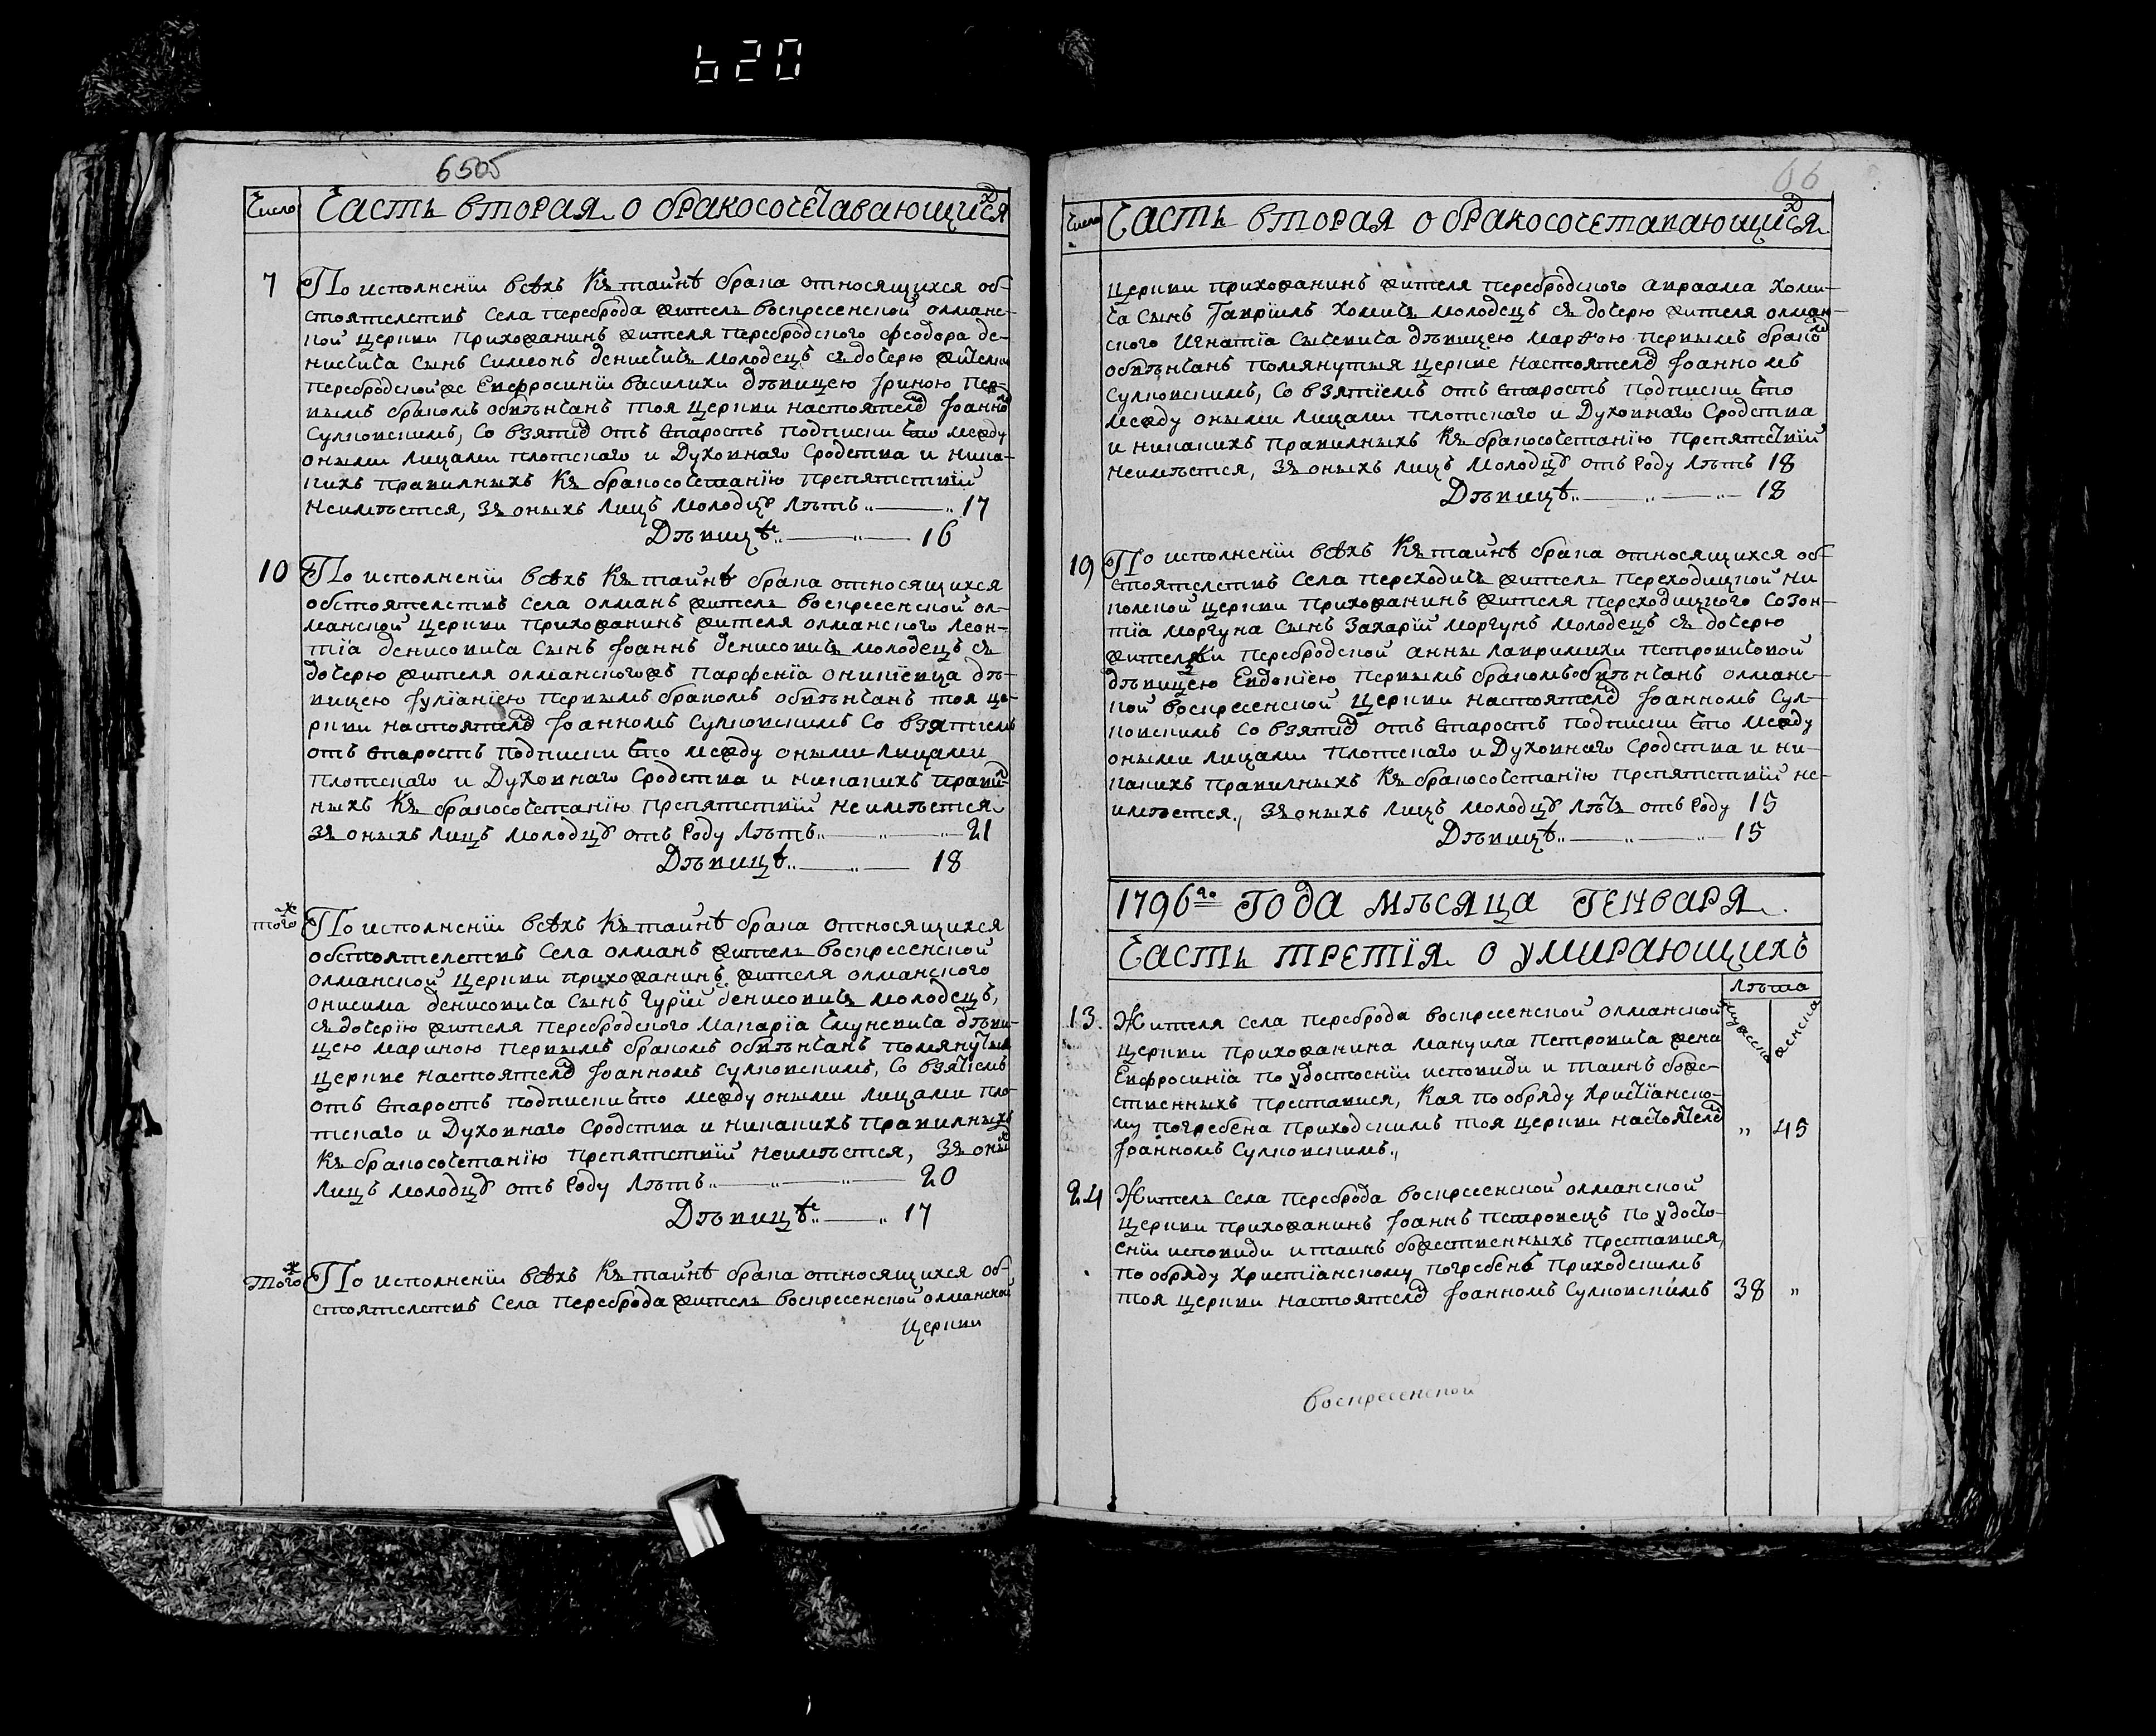 620
650б
Число
Часть вторая о бракосочетавающихся
7
По исполненіи всѣхъ къ тайнѣ брака относящихся об-
стоятелствъ села переброда житель воскресенской олманс-
кой церкви прихожанинъ жителя перебродского феодора де-
нисчича сынъ симеонъ денисчичъ молодецъ съ дочерю жителки
перебродской же Евфросиніи василихи дѣвицею Іриною пер-
вымъ бракомъ обвѣнчанъ тоя церкви настоятелемъ Іоанномъ
Сулковскимъ, со взятіемъ отъ старостъ подписки что между
оными лицами плотскаго и Духовнаго Сродства и ника-
кихъ правилныхъ къ бракосочетанію препятствій
неимѣется, зъ оныхъ лицъ молодцу лѣтъ „ — „ 17
Дѣвицѣ „ — „ — 16
10
По исполненіи всѣхъ къ тайнѣ брака относящихся
обстоятелствъ села олманъ житель воскресенской ол-
манской церкви прихожанинъ жителя олманского леон-
тіа денисовича сынъ Іоаннъ денисовичъ молодецъ съ
дочерю жителя олманского жъ парфеніа онипіевца дѣ-
вицею Іуліаніею первымъ бракомъ обвѣнчанъ тоя це-
ркви настоятелемъ Іоанномъ Сулковскимъ со взятіемъ
отъ старостъ подписки что между оными лицами
плотскаго и Духовнаго Сродства и никакихъ правил-
ныхъ къ бракосочетанію препятствій неимѣется
зъ оныхъ лицъ молодцу отъ роду лѣтъ „ — „ — „ 21
Дѣвицѣ „ — „ — 18
тогожъ
По исполненіи всѣхъ къ тайнѣ брака относящихся
обстоятелствъ села олманъ житель воскресенской
олманской церкви прихожанинъ жителя олманского
онисима денисовича сынъ гурій денисовичъ молодецъ,
съ дочерію жителя перебродского макаріа Смуневича дѣви-
цею мариною первымъ бракомъ обвѣнчанъ помянутыя
церкве настоятелемъ Іоанномъ Сулковскимъ, со взятіемъ
отъ старостъ подписки что между оными лицами пло-
тскаго и Духовнаго Сродства и никакихъ правилныхъ
къ бракосочетанію препятствій неимѣется, зъ оныхъ
лицъ молодцу отъ роду лѣтъ „ — „ — „ — 20
Дѣвицѣ „ — „ 17
тогожъ
По исполненіи всѣхъ къ тайнѣ брака относящихся об-
стоятелствъ села переброда житель воскресенской олманской
церкви
66
Число
Часть вторая о бракосочетавающихся
церкви прихожанинъ жителя перебродского авраама хоми-
ча сынъ гавріилъ хомичъ молодецъ съ дочерю жителя олман-
ского Игнатіа Сычевича дѣвицею марѳою первымъ бракомъ
обвѣнчанъ помянутыя церкве настоятелемъ Іоанномъ
Сулковскимъ, со взятіемъ отъ старостъ подписки что
между оными лицами плотскаго и Духовнаго Сродства
и никакихъ правилныхъ къ бракосочетанію препятствій
неимѣется, зъ оныхъ лицъ молодцу отъ роду лѣтъ 18
Дѣвицѣ „ — „ — „ — 18
19
По исполненіи всѣхъ къ тайнѣ брака относящихся об-
стоятелствъ села переходичъ житель переходицкой ни-
колской церкви прихожанинъ жителя переходицкого созон-
тіа моргуна сынъ захарій моргунъ молодецъ съ дочерю
жителки перебродской анны лавримихи петровичовой
дѣвицею Евдокіею первымъ бракомъ обвѣнчанъ олманс-
кой воскресенской церкви настоятелемъ Іоанномъ Сул-
ковскимъ со взятіемъ отъ старостъ подписки что между
оными лицами плотскаго и Духовнаго Сродства и ни-
какихъ правилныхъ къ бракосочетанію препятствій не-
имѣется, зъ оныхъ лицъ молодцу лѣтъ отъ роду 15
Дѣвицѣ „ — „ — „ — 15
1796го Года мѣсяца Генваря
Часть третія о умирающихъ
лѣта
мужеска
женска
13.
Жителя села переброда воскресенской олманской
церкви прихожанина мануила петровича жена
Евфросиніа по удостоеніи исповѣди и таинъ боже-
ственныхъ преставися, кая по обряду христіанско-
му погребена приходскимъ тоя церкви настоятелемъ „ 45
Іоанномъ Сулковскимъ „
24
Житель села переброда воскресенской олманской
церкви прихожанинъ Іоаннъ петровецъ по удосто-
еніи исповѣди и таинъ божественныхъ преставися,
по обряду христіанскому погребенъ приходскимъ
тоя церкви настоятелемъ Іоанномъ Сулковскимъ 38 „
воскресенской